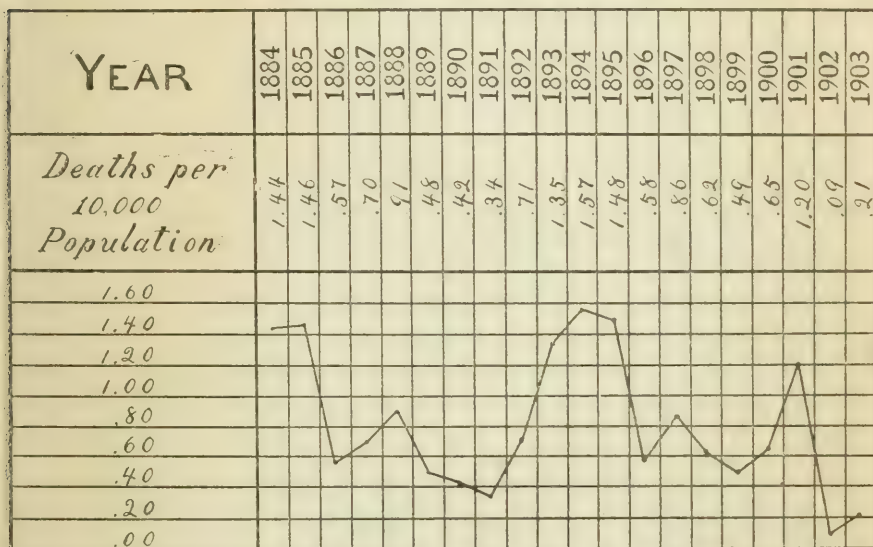 YEAR 1884 1885 1886 1887 1888 1889 1890 1891 1892 1893 1894 1895 1896 1897 1898 1899 1900 1901 1902 1903
Deaths per
10,000
Population
1.44 1.46 .57 .70 .91 .48 .42 .34 .71 1.35 1.57 1.48 .58 .86 .62 .49 .65 1.20 .09 .21
1.60
1.40
1.20
1.00
.80
.60
.40
.20
.00